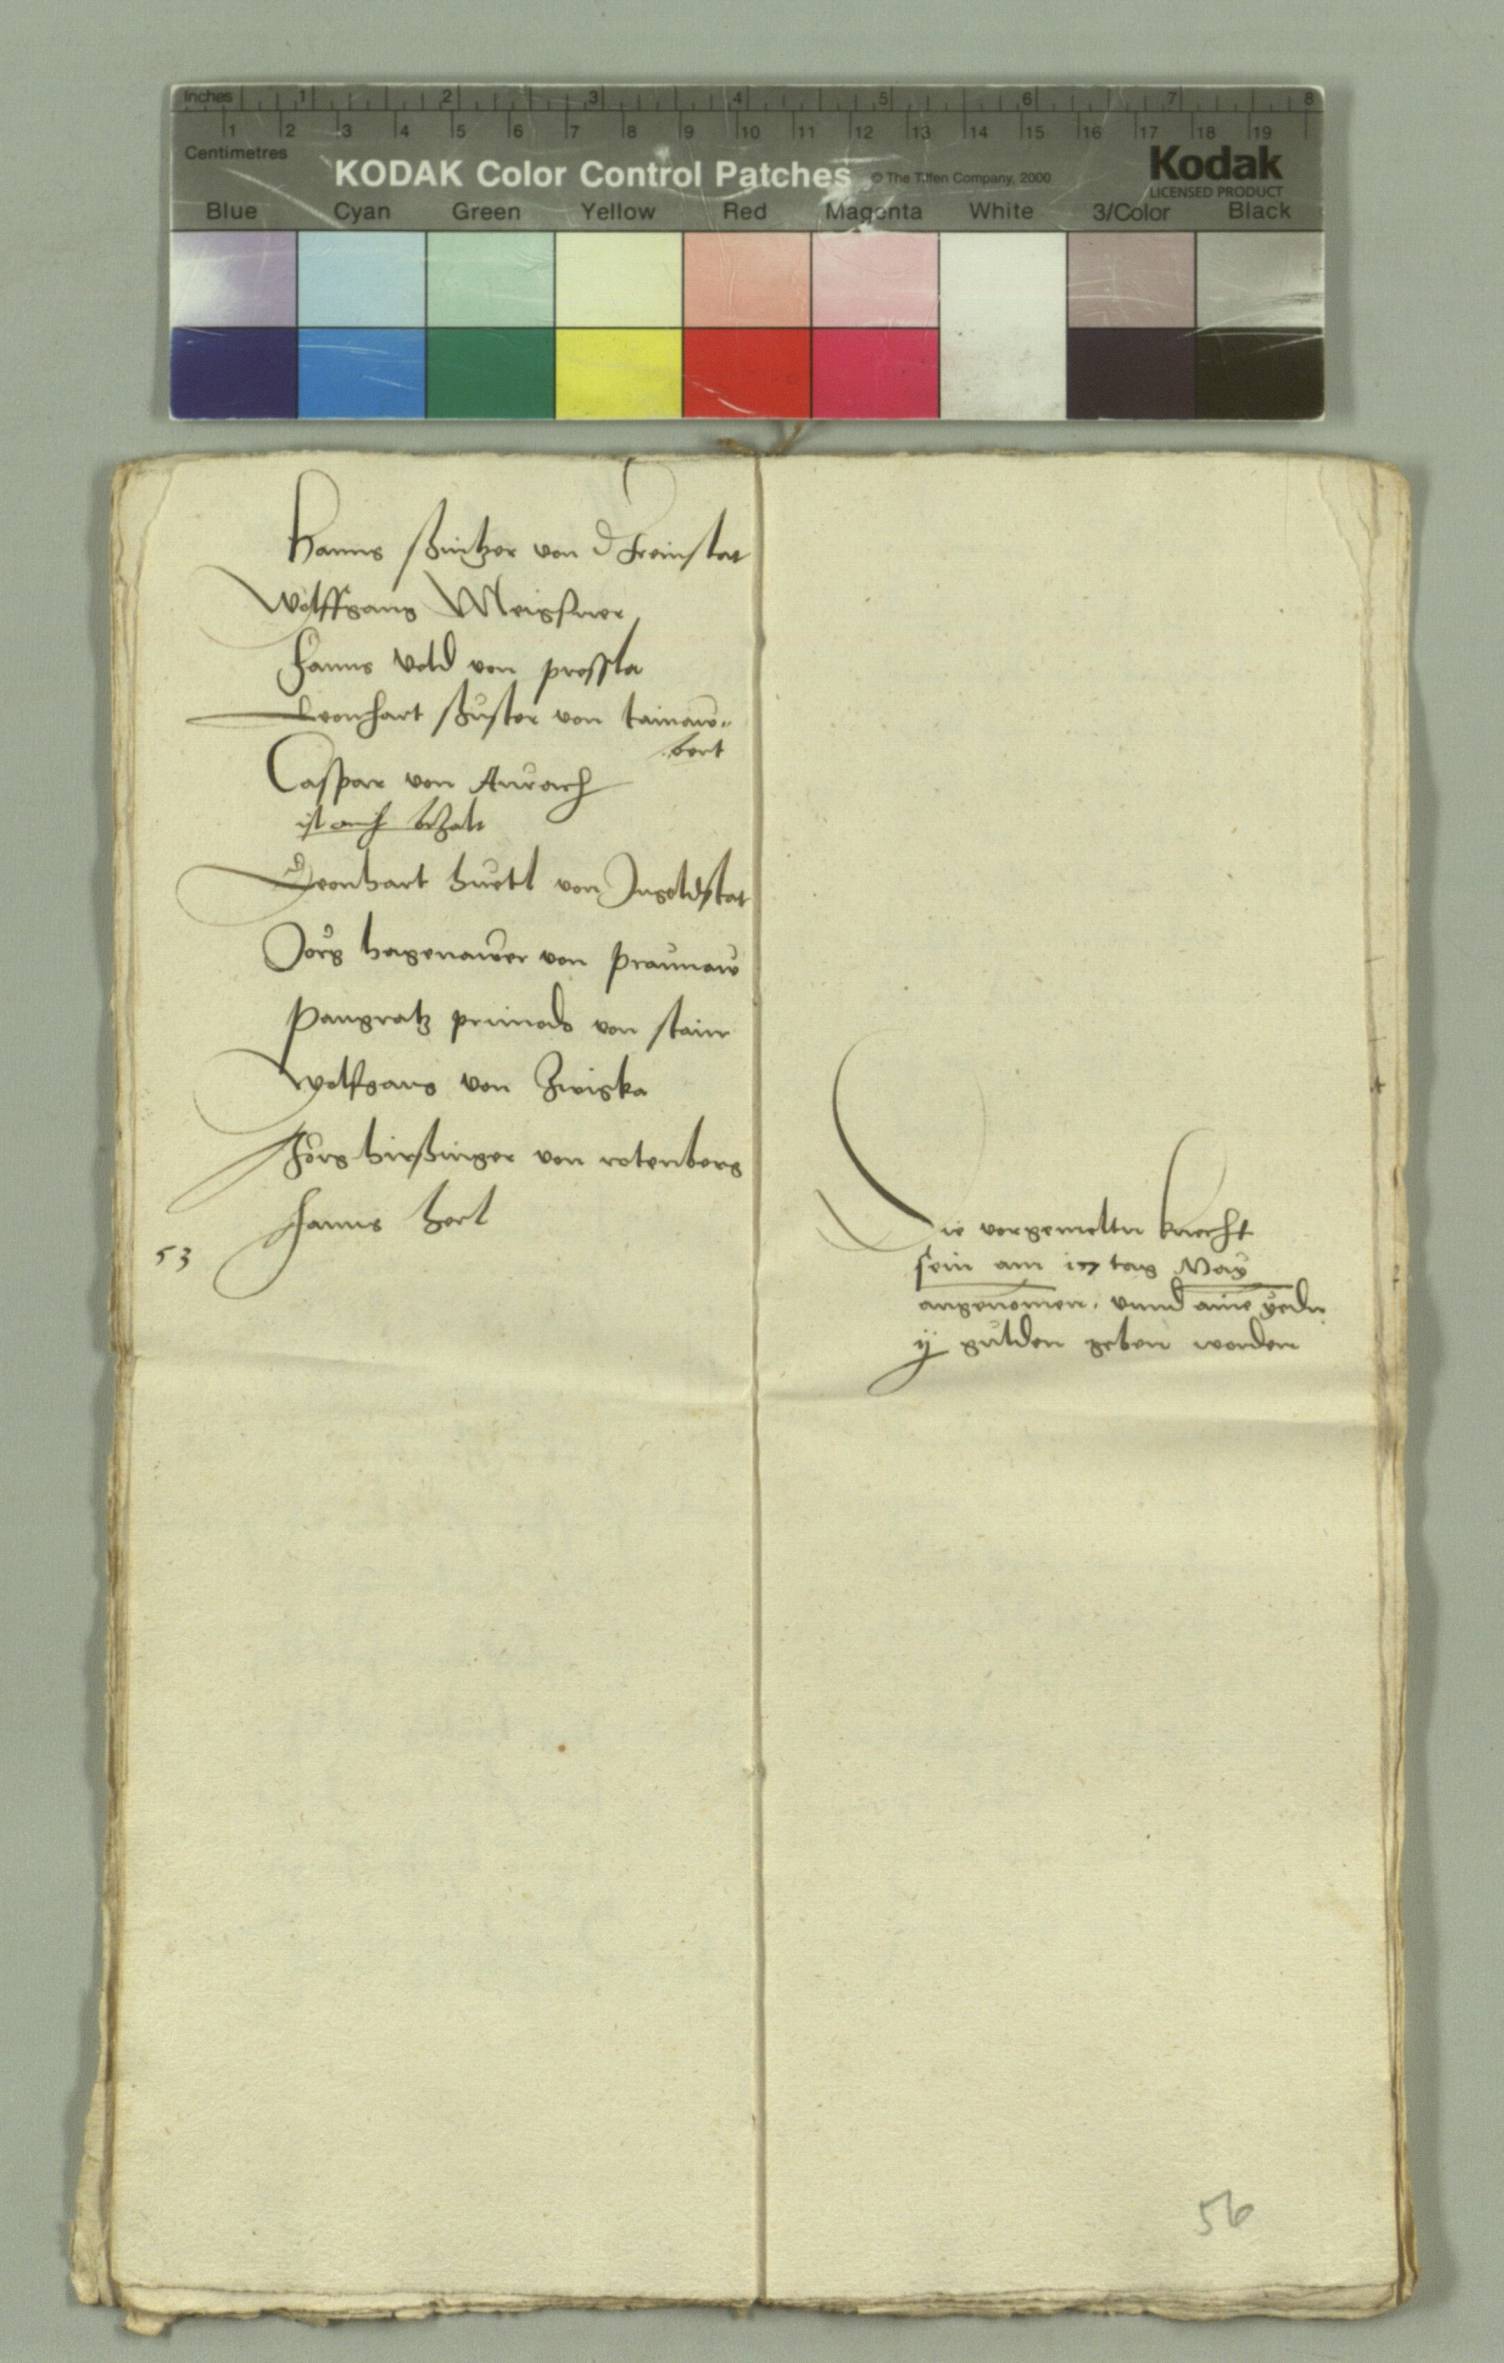 Inches 1 2 3 4 5 6 7 8
1 2 3 4 5 6 7 8 9 10 11 12 13 14 15 16 17 18 19
Centimetres
KODAK Color Control Patches © The Tiffen Company, 2000 Kodak
LICENSED PRODUCT
Blue Cyan Green Yellow Red Magenta White 3/Color Black
Hanns von d Freinstat
Wolffgang Meigsner
Hanns von prossla
Leonhart von
Caspar von Aurach
ist auch bezalt
Leonhart huetl von Ingoldstat
Jorg hagenawer von Praunaw
Pangratz von stain
Wolfgang von Zwigka
Jorg hirssinger von rotenberg
Hanns hert
53
Die vorgemeltn knecht
sein am 17 tag May
angenomen, vnnd aine yedn
ij gulden geben worden
56